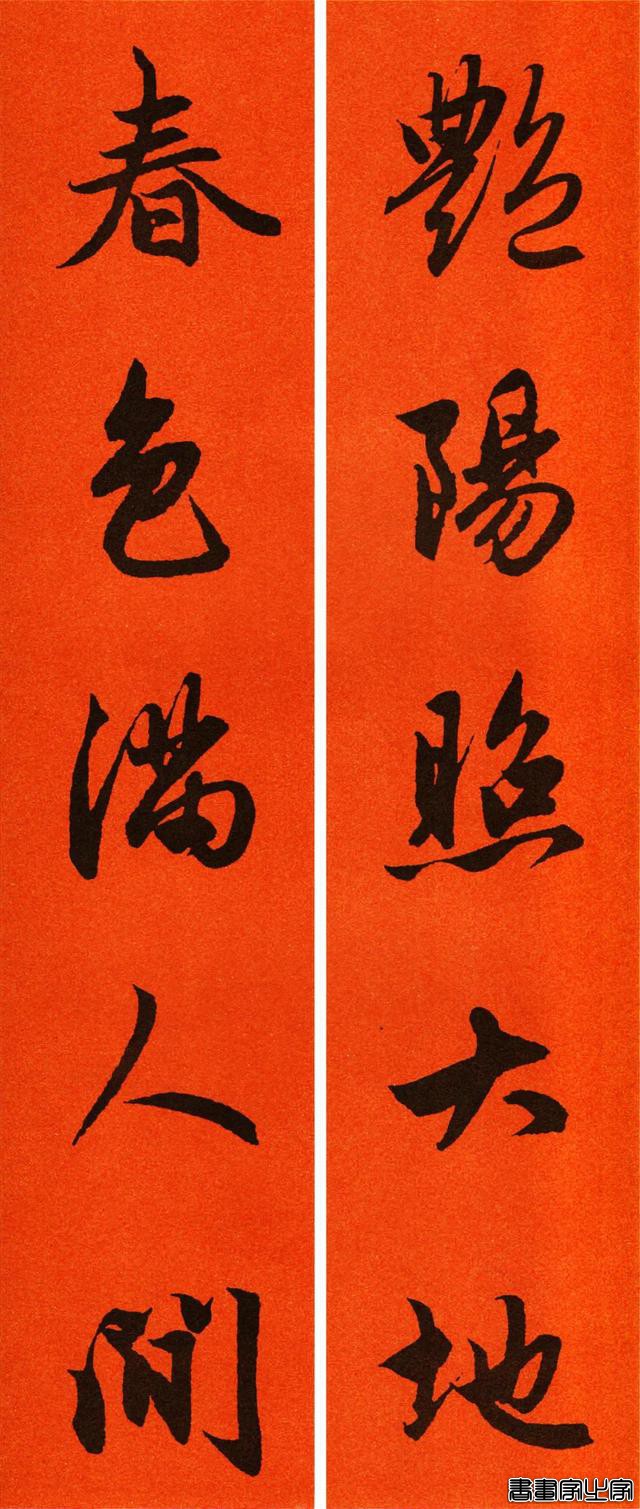 艷陽照大地
春色滿人間
書畫家之家